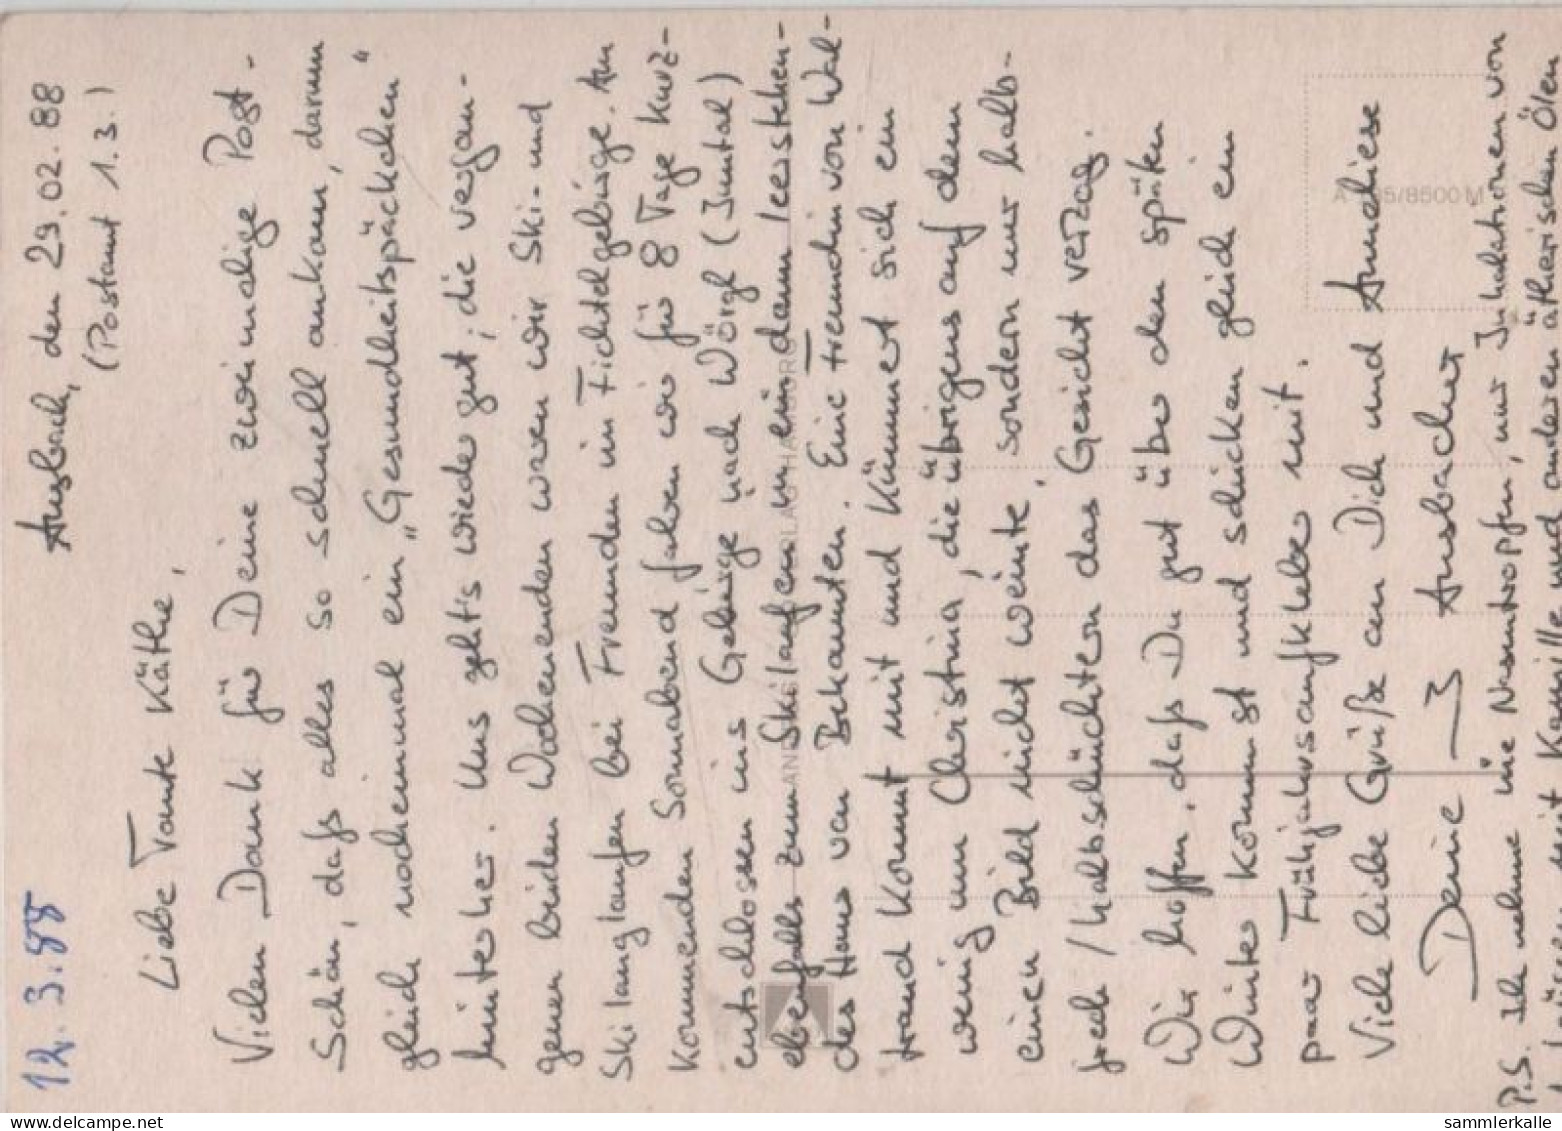 12.3.88
Ansbach, den 29.02.88
(Postamt 1.3.)
Liebe Tante Käthe,
Vielen Dank für Deine zweimalige Post.
Schön, daß alles so schnell ankam, darum
gleich nocheinmal ein „Gesundheitspäckchen“
hinterher. Uns geht's wieder gut, die vergan-
genen beiden Wochenenden waren wir Ski- und
Skilanglaufen bei Freunden im Fichtelgebirge. Am
kommenden Sonnabend fahren wir für 8 Tage kurz-
entschlossen ins Gebirge nach Wörgl (Inntal)
ebenfalls zum Skilaufen in ein dann leerstehen-
des Haus von Bekannten. Eine Freundin von Wal-
traud kommt mit und kümmert sich ein
wenig um Christina, die übrigens auf dem
einen Bild nicht weinte, sondern nur halb-
frech / halbschüchtern das Gesicht verzog.
Wir hoffen, daß Du gut über den späten
Winter kommst und schicken gleich ein
paar Frühjahrsaufkleber mit.
Viele liebe Grüße an Dich und Anneliese
Deine 3 Ansbacher
P.S. Ich nehme nie Nasentropfen, nur Inhalationen von
mit Kamille und anderen ätherischen Ölen
VERLAG HAMBURG
/8500 M
sammlerkalle